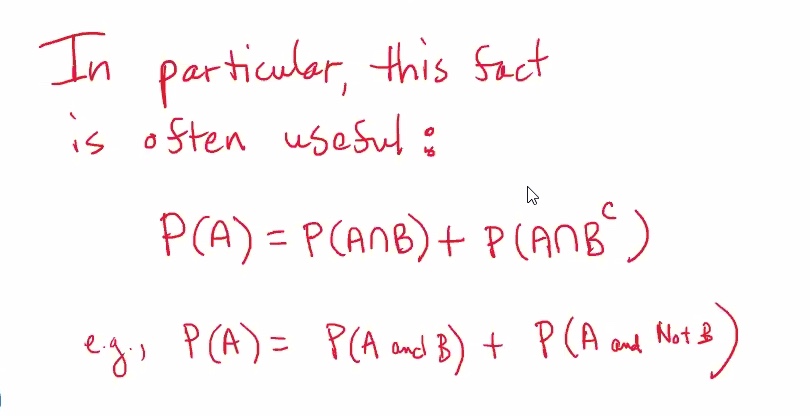 In particular, this fact
is often useful:
P(A) = P(A∩B) + P(A∩Bᶜ)
e.g., P(A) = P(A and B) + P(A and Not B)